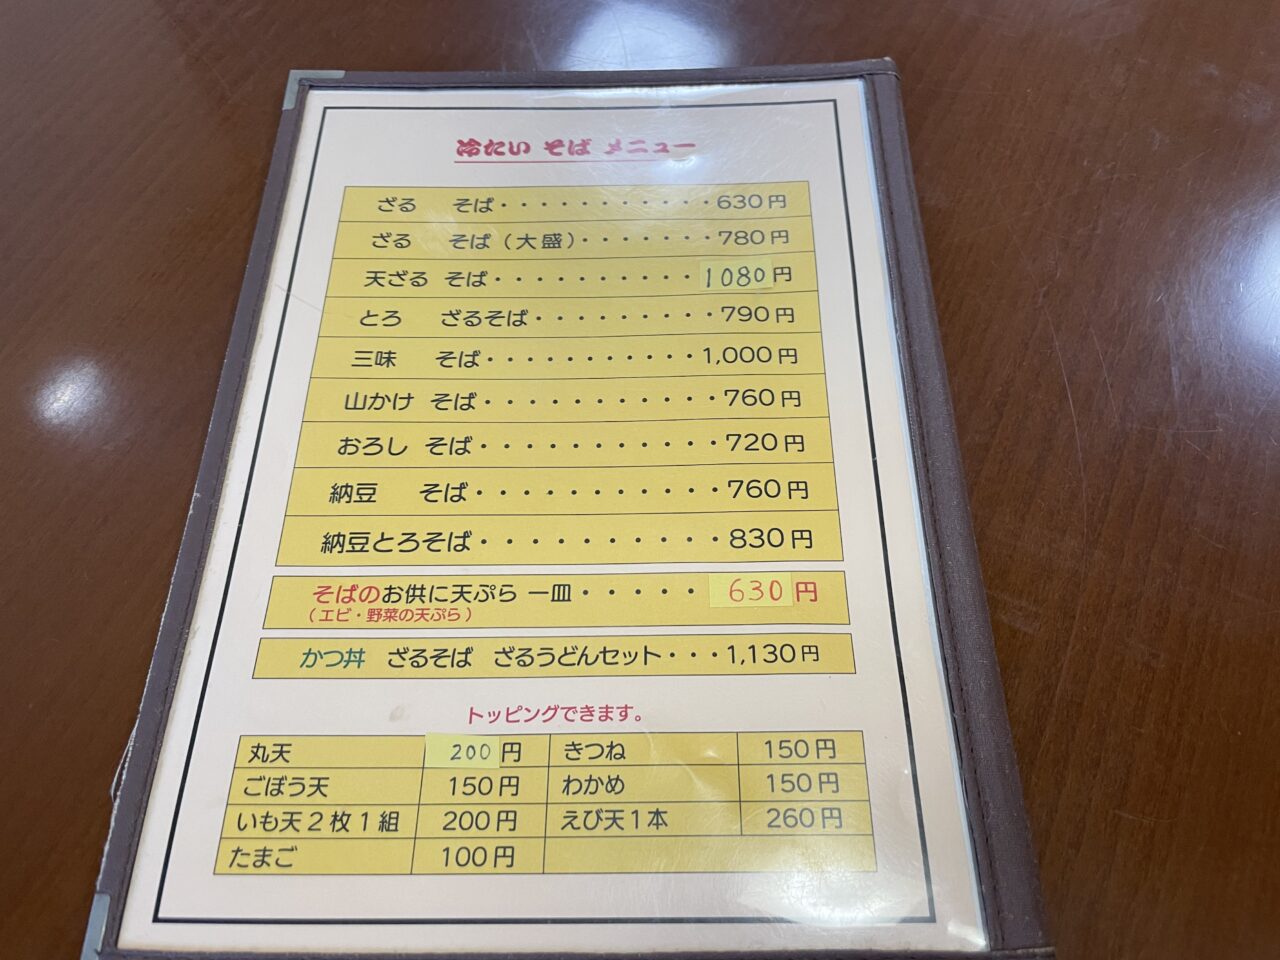 冷たい そば メニュー
ざる そば・・・・・・・・・・・630円
ざる そば（大盛）・・・・・・・780円
天ざる そば・・・・・・・・・・1080円
とろ ざるそば・・・・・・・・・790円
三味 そば・・・・・・・・・・・1,000円
山かけ そば・・・・・・・・・・・760円
おろし そば・・・・・・・・・・・720円
納豆 そば・・・・・・・・・・・760円
納豆とろそば・・・・・・・・・・830円
そばのお供に天ぷら 一皿・・・・・630円
（エビ・野菜の天ぷら）
かつ丼 ざるそば ざるうどんセット・・・1,130円
トッピングできます。
丸天 200円 きつね 150円
ごぼう天 150円 わかめ 150円
いも天２枚１組 200円 えび天１本 260円
たまご 100円